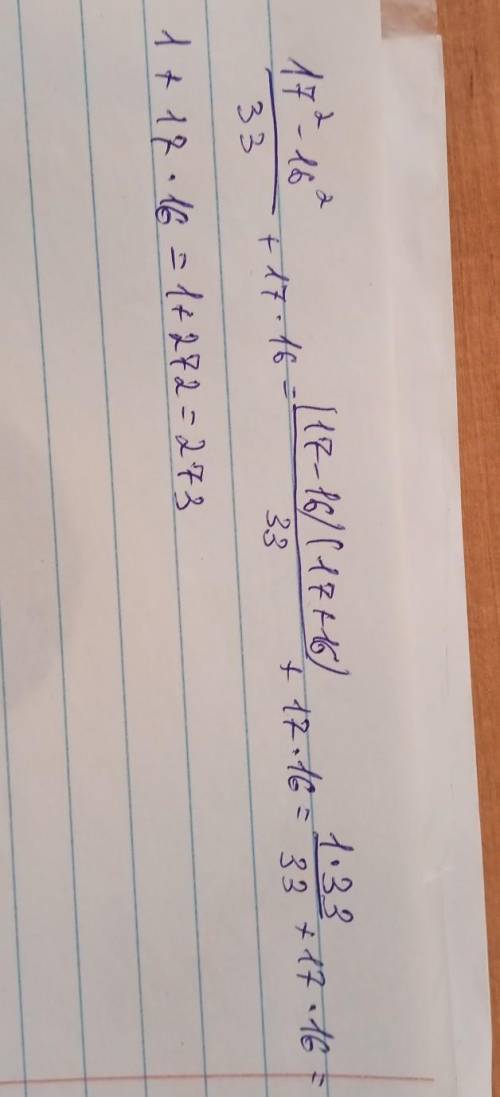 (17² - 16²)/33 + 17 · 16 = ((17 - 16)(17 + 16))/33 + 17 · 16 = (1 · 33)/33 + 17 · 16 =
1 + 17 · 16 = 1 + 272 = 273